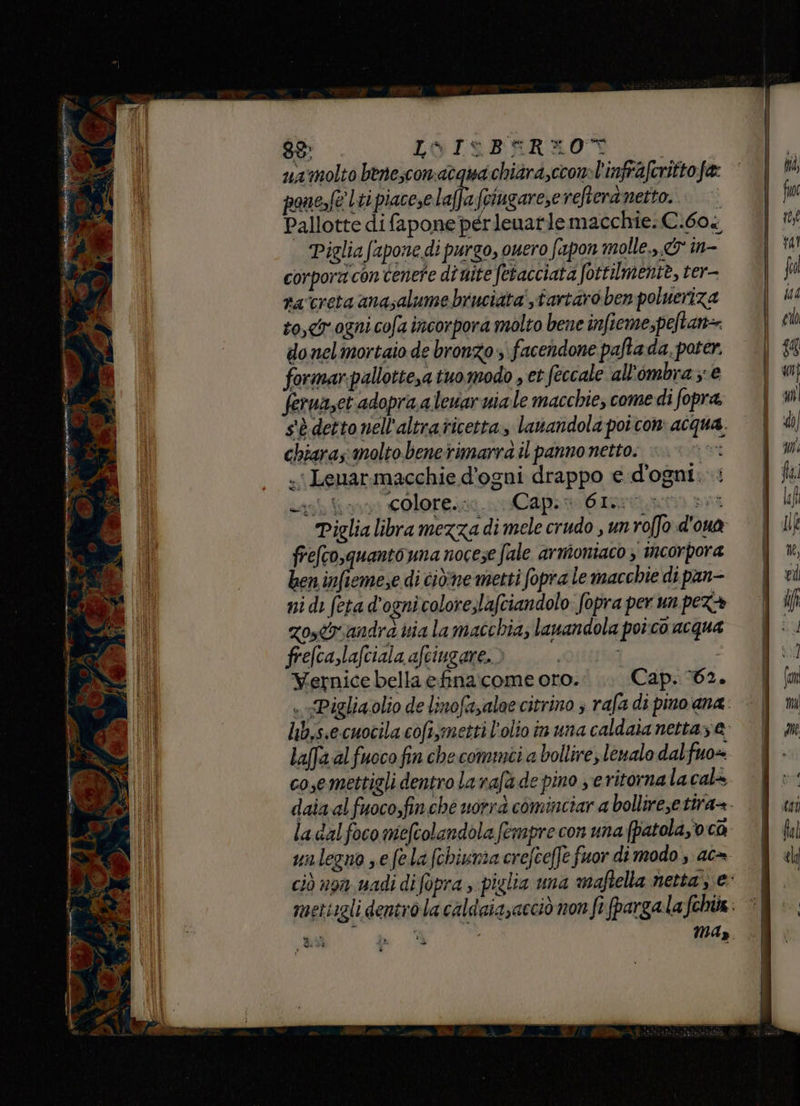 88
ua molto bene, con acqua chiara, e con l'infraſcritto ſa
pone, ſe'l ti piace, e laſſa ſciugare, e reſterà netto.
Pallotte di ſapone per leuar le macchie. C. 60.
Piglia ſapone di purgo, ouero ſapon molle, & in-
corpora con cenere di uite ſetacciata ſottilmente, ter-
ra creta ana, alume bruciata, tartaro ben polueriza
to, & ogni coſa incorpora molto bene inſieme, peſtan-
do nel mortaio de bronzo, facendone paſta da poter
formar pallotte, a tuo modo, et ſeccale all'ombra, e
ſerua, et adopra a leuar uia le macchie, come di ſopra
s'è detto nell'altra ricetta, lauandola poi con acqua
chiara, molto bene rimarrà il panno netto.
Leuar macchie d'ogni drappo e d'ogni
colore. Cap. 61.
Piglia libra mezza di mele crudo, un roſſo d'oua
freſco, quanto una noce, e ſale armoniaco, incorpora
ben inſieme, e di ciò ne metti ſopra le macchie di pan-
ni di ſeta d'ogni colore, laſciandolo ſopra per un pez-
zo, & andrà uia la macchia, lauandola poi cō acqua
freſca, laſciala aſciugare.
Vernice bella e fina come oro. Cap. 62.
Piglia olio de linoſa, aloe citrino, raſa di pino ana
lib. s. e cuocila coſi, metti l'olio in una caldaia netta, e
laſſa al fuoco fin che cominci a bollire, leualo dal fuo-
co, e mettigli dentro la raſa de pino, e ritorna la cal-
daia al fuoco, fin che uorrà cominciar a bollire, e tira-
la dal foco meſcolandola ſempre con una ſpatola, o cō
un legno, e ſe la ſchiuma creſceſſe fuor di modo, ac-
ciò non uadi di ſopra, piglia una maſtella netta, e
mettigli dentro la caldaia, acciò non ſi ſparga la ſchiu
ma,